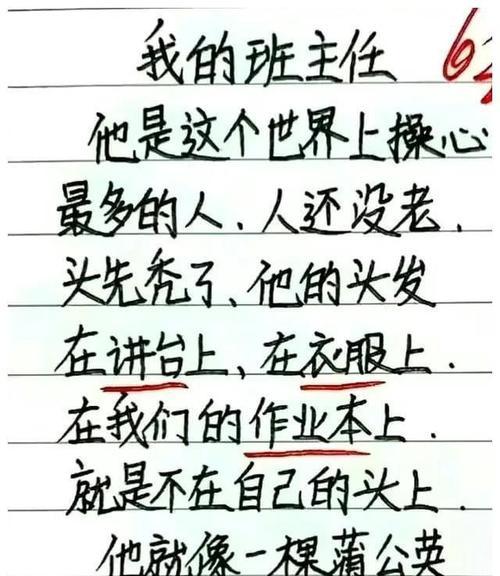 我的班主任
他是这个世界上操心
最多的人、人还没老、
头先秃了、他的头发
在讲台上、在衣服上.
在我们的作业本上.
就是不在自己的头上.
他就像一棵蒲公英